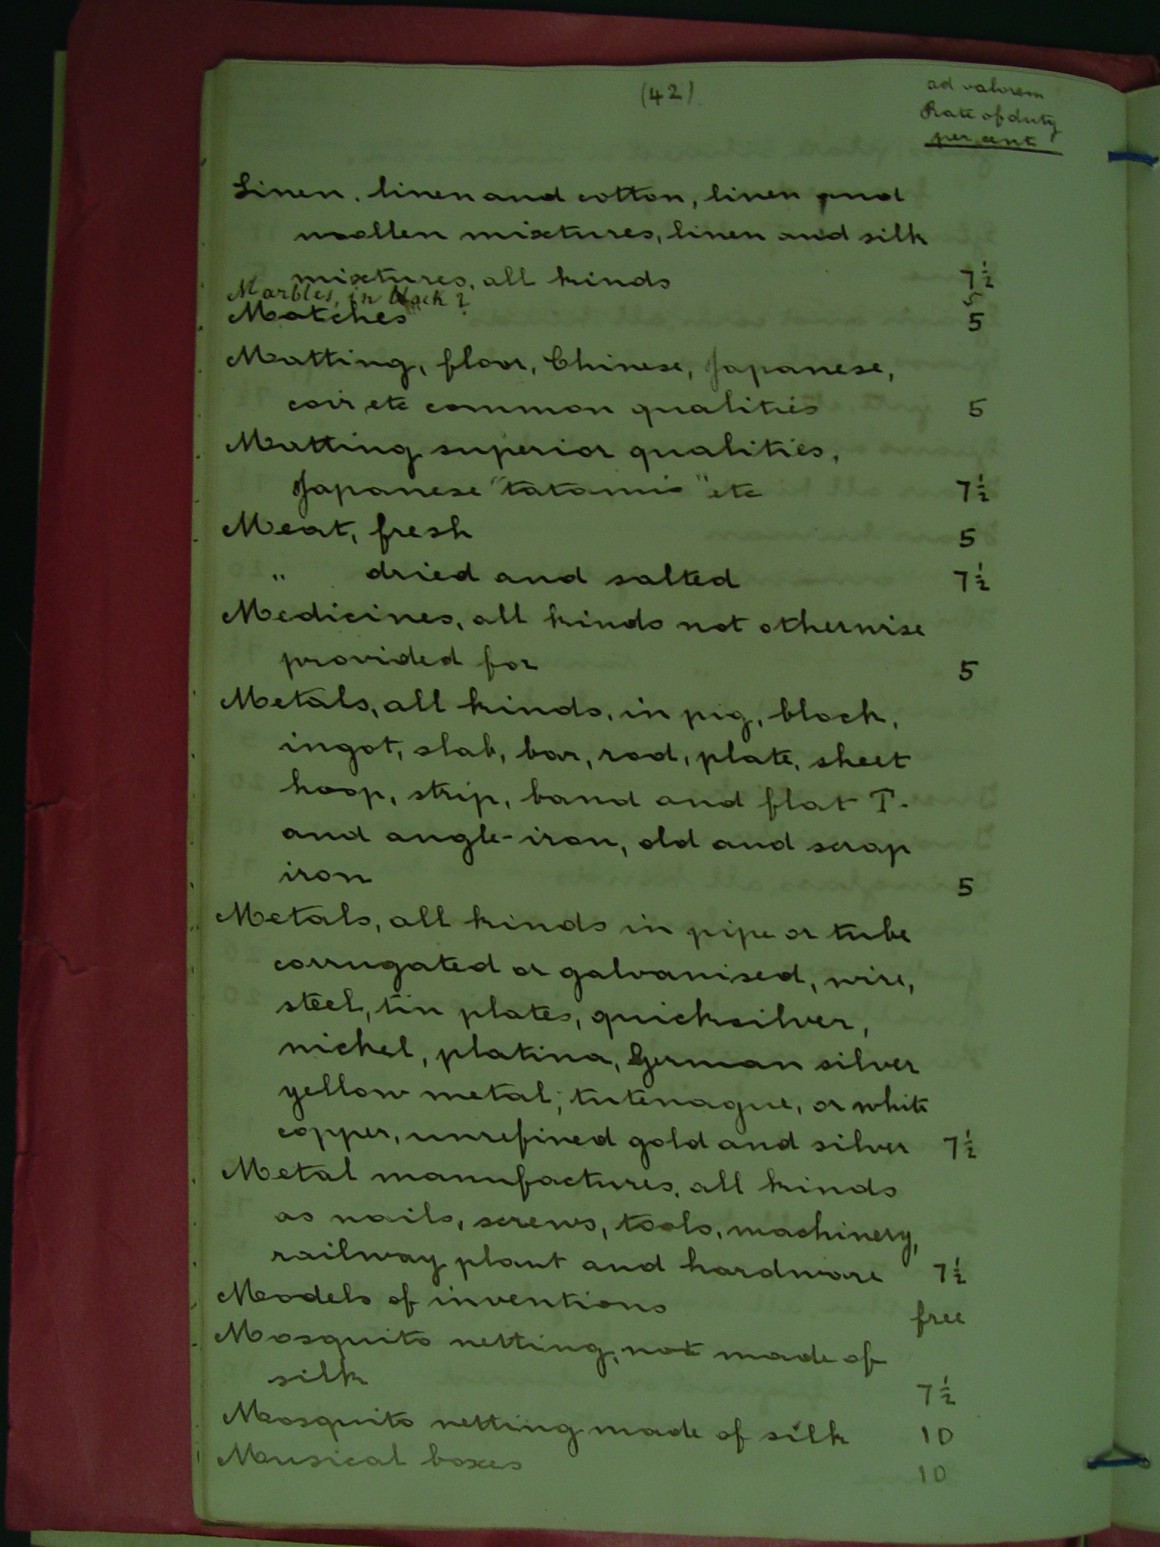 (42)
ad valorem
Rate of duty
per cent
Linen, linen and cotton, linen and
woollen mixtures, linen and silk
mixtures, all kinds 7½
Marbles, in block? 5
Matches 5
Matting, floor, Chinese, Japanese,
coir etc common qualities 5
Matting superior qualities,
Japanese "tatamis" etc 7½
Meat, fresh 5
" dried and salted 7½
Medicines, all kinds not otherwise
provided for 5
Metals, all kinds, in pig, block,
ingot, slab, bar, rod, plate, sheet
hoop, strip, band and flat T-
and angle-iron, old and scrap
iron 5
Metals, all kinds in pipe or tube
corrugated or galvanised, wire,
steel, tin plates, quicksilver,
nickel, platina, German silver
yellow metal, tutenague, or white
copper, unrefined gold and silver 7½
Metal manufactures, all kinds
as nails, screws, tools, machinery,
railway plant and hardware 7½
Models of inventions free
Mosquito netting, not made of
silk 7½
Mosquito netting made of silk 10
Musical boxes 10